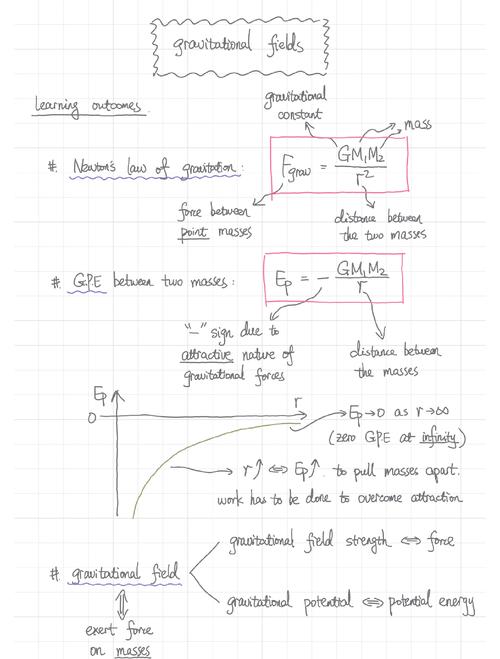 gravitational fields
Learning outcomes.
gravitational
constant
mass
#. Newton's law of gravitation: F_grav = GM₁M₂ / r²
force between
point masses
distance between
the two masses
#. G.P.E between two masses: E_p = - GM₁M₂ / r
"—" sign due to
attractive nature of
gravitational forces
distance between
the masses
E_p
0
r
E_p → 0 as r → ∞
(zero GPE at infinity.)
r↑ ⇔ E_p↑. to pull masses apart.
work has to be done to overcome attraction
gravitational field strength ⇔ force
#. gravitational field
gravitational potential ⇔ potential energy
⇕
exert force
on masses